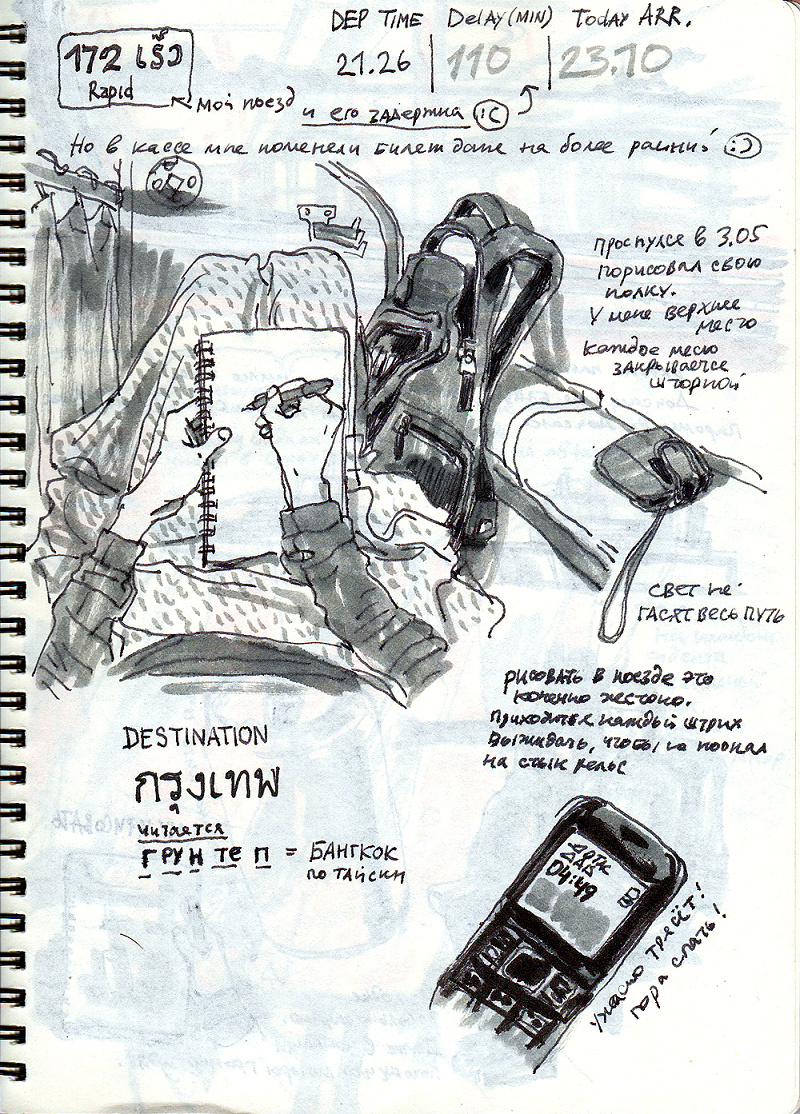 DEP TIME Delay(MIN) Today ARR.
172 เร็ว
Rapid
21.26 110 23.10
мой поезд
и его задержка :C
Но в кассе мне поменяли билет даже на более ранний! :)
проснулся в 3.05
порисовал свою
полку.
У меня верхнее
место
каждое место
закрывается
шторкой
СВЕТ НЕ
ГАСЯТ ВЕСЬ ПУТЬ
рисовать в поезде это
конечно жестоко.
приходится каждый штрих
выжидать, чтобы не попал
на стык рельс
DESTINATION
กรุงเทพ
читается
ГРУН ТЕ П = БАНГКОК
по ТАЙСКИ
04:49
Ужасно трясёт!
пора спать!